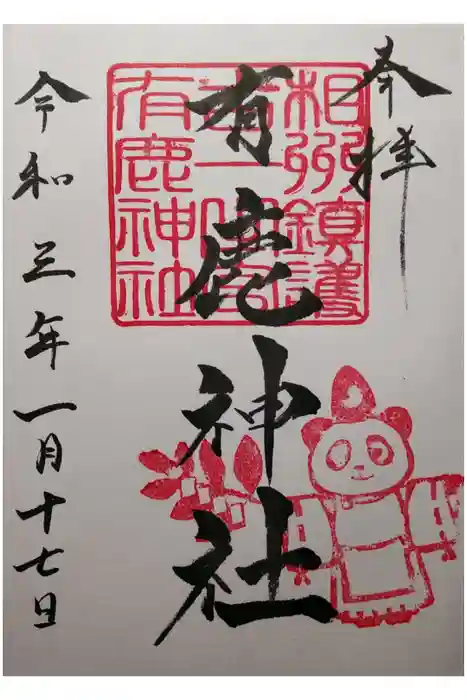 奉拝
相州鎮護
有鹿神社
有鹿神社
令和三年一月十七日